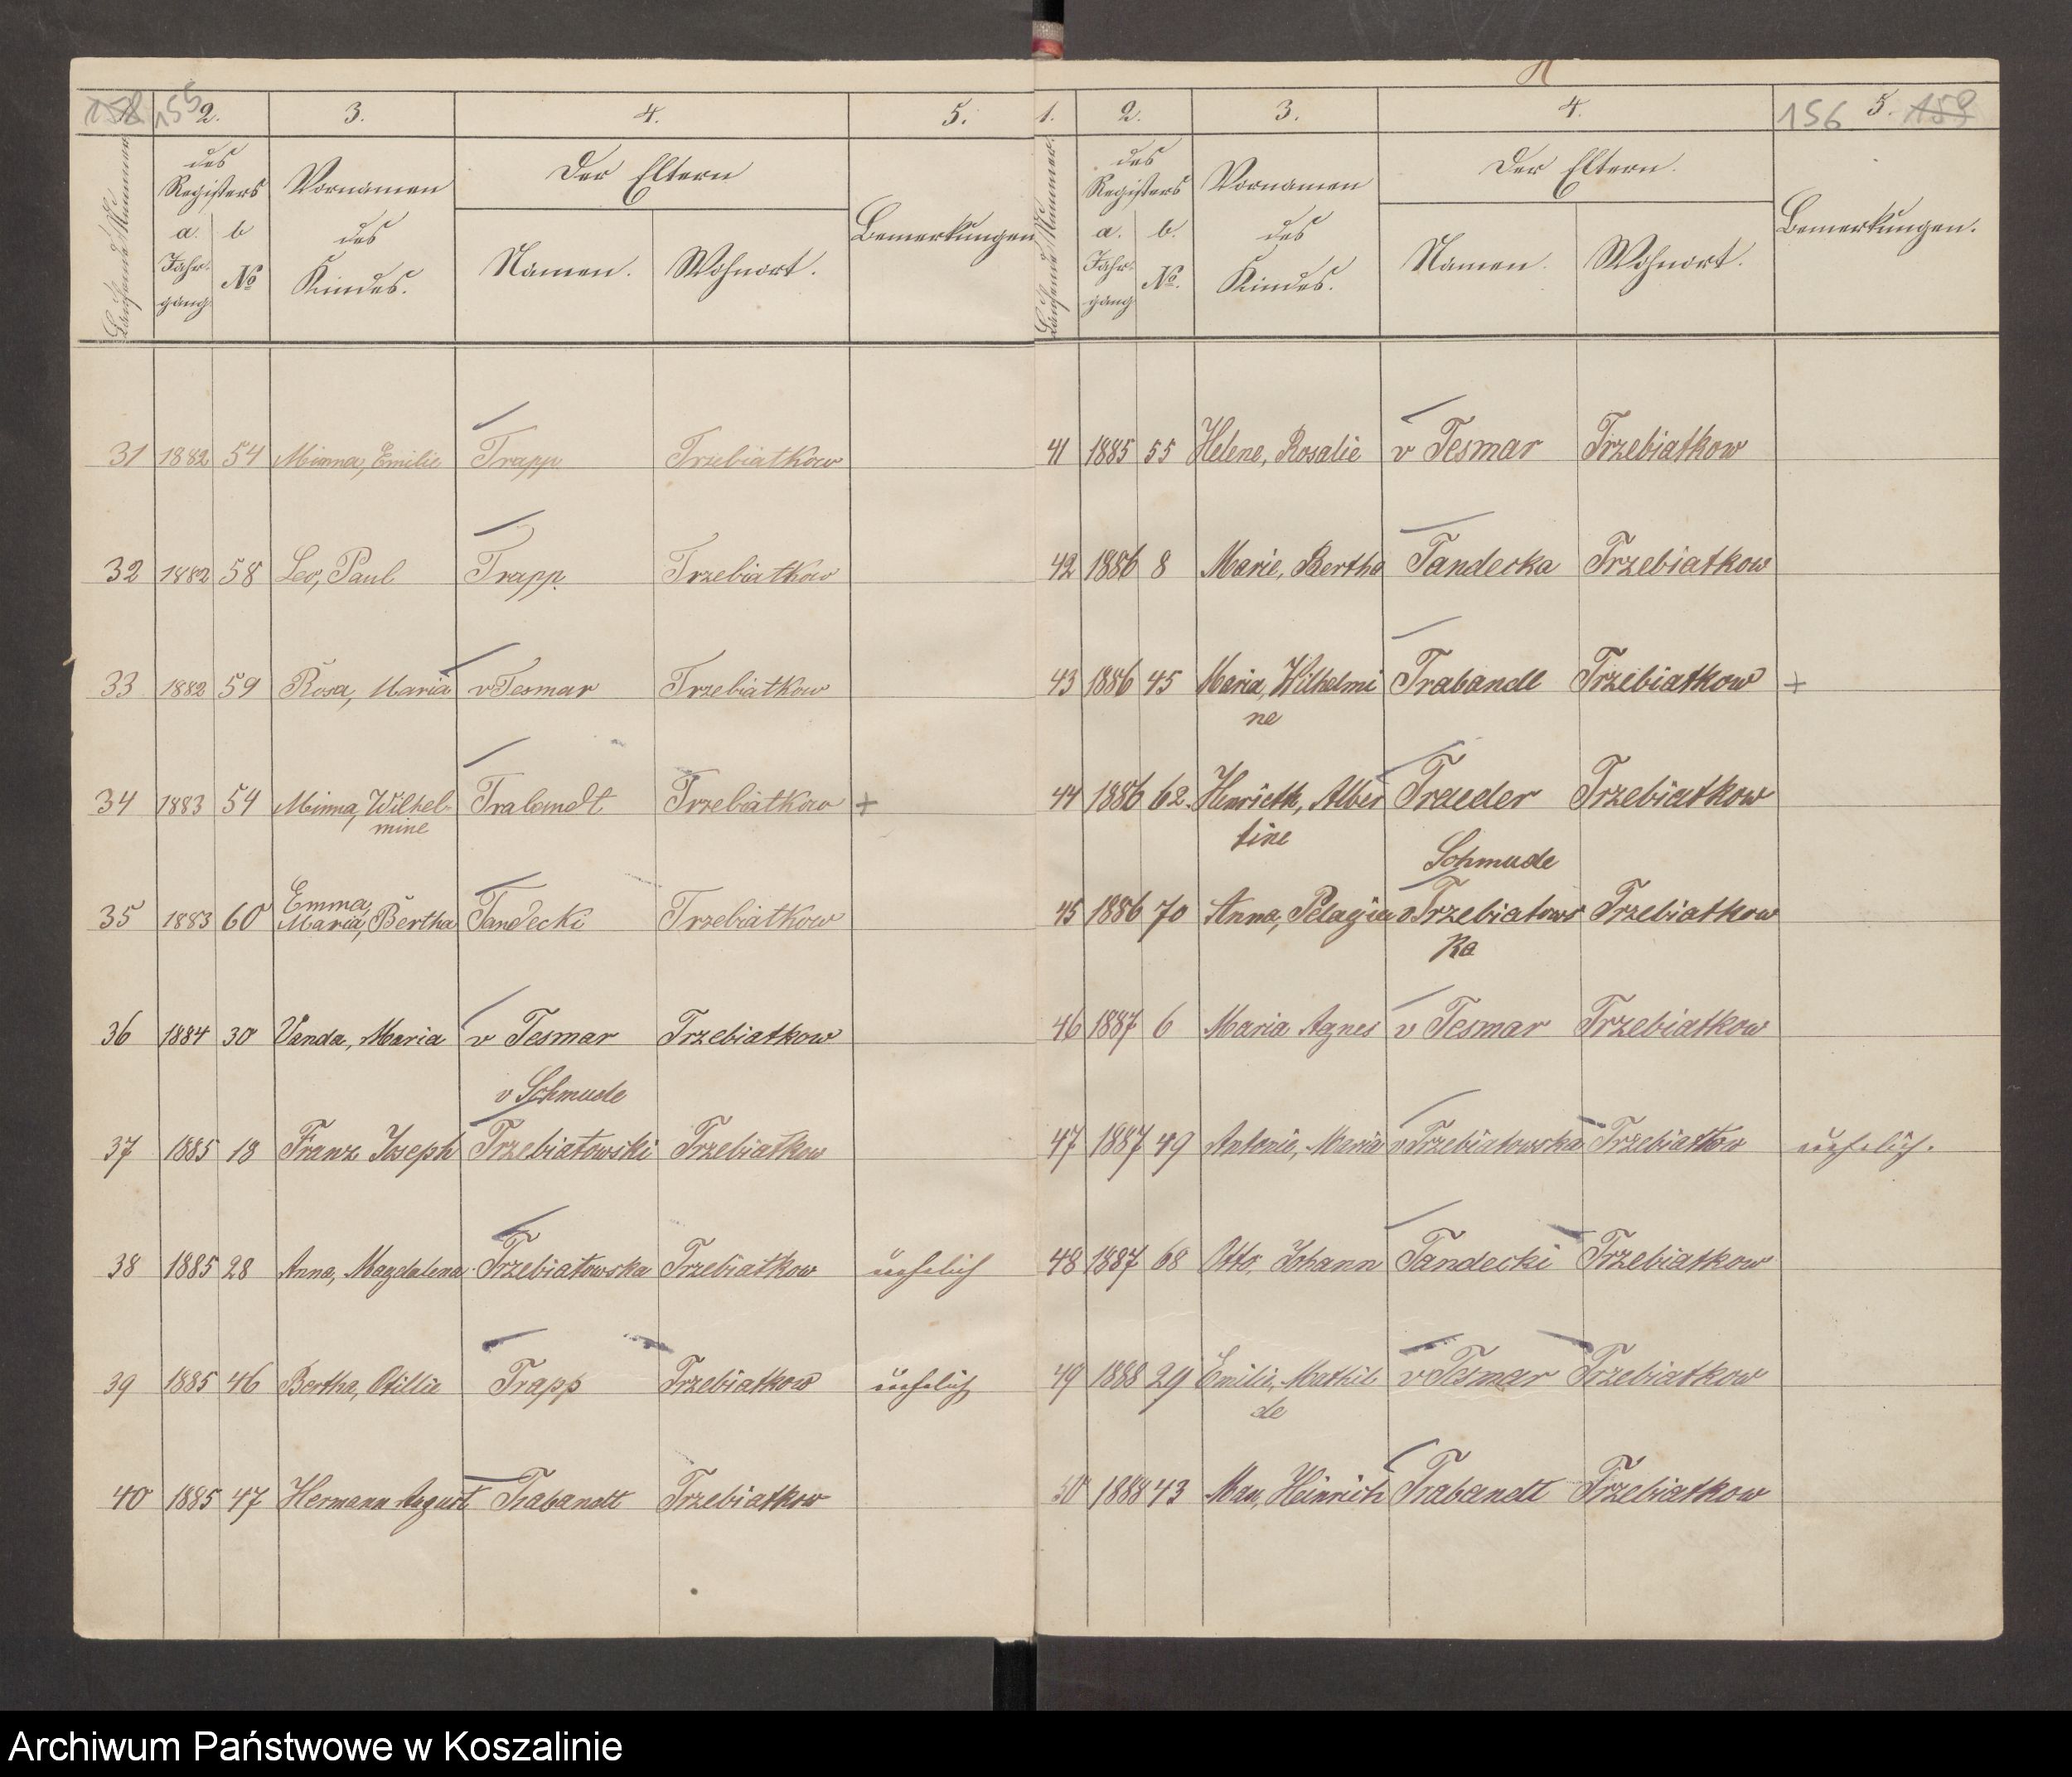 155 2. 3. 4. 5.
Laufende Nummer
des Registers
a. b
Jahrgang № 
Vornamen des Kindes.
Der Eltern
Namen. Wohnort.
Bemerkungen
31 1882 54 Minna, Emilie Trapp Trzebiatkow
32 1882 58 Leo, Paul Trapp Trzebiatkow
33 1882 59 Rosa, Maria v Tesmar Trzebiatkow
34 1883 54 Minna, Wilhel- Trabandt Trzebiatkow +
mine
Emma,
35 1883 60 Maria, Bertha Tandecki Trzebiatkow
36 1884 30 Vanda, Maria v Tesmar Trzebiatkow
v Schmude
37 1885 18 Franz Joseph Trzebiatowski Trzebiatkow
38 1885 28 Anna, Magdalena Trzebiatowska Trzebiatkow unehelich
39 1885 46 Bertha, Otillie Trapp Trzebiatkow unehelich
40 1885 47 Hermann August Trabandt Trzebiatkow
1. 2. 3. 4. 156 5. 159
Laufende Nummer
des Registers
a. b.
Jahrgang №.
Vornamen des Kindes.
Der Eltern.
Namen. Wohnort.
Bemerkungen.
41 1885 55 Helene, Rosalie v Tesmar Trzebiatkow
42 1886 8 Marie, Bertha Tandecka Trzebiatkow
43 1886 45 Maria, Wilhelmi Trabandt Trzebiatkow +
ne
44 1886 62. Henrieth, Alber Traeder Trzebiatkow
tine
Schmude
45 1886 70 Anna, Pelagia v Trzebiatows Trzebiatkow
ka
46 1887 6 Maria Agnes v Tesmar Trzebiatkow
47 1887 49 Antonie, Maria v Trzebiatowska Trzebiatkow unehelich.
48 1887 68 Otto, Johann Tandecki Trzebiatkow
49 1888 29 Emilie, Mathil v Tesmar Trzebiatkow
de
50 1888 43 Max, Heinrich Trabandt Trzebiatkow
Archiwum Państwowe w Koszalinie